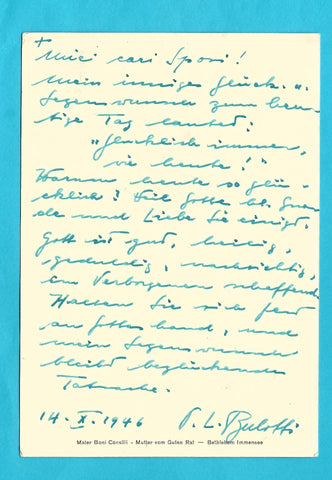 +
Miei cari Sposi!
Mein inniges Glück- u.
Segenswunsch zum heu-
tige Tag lautet:
"Glücklich immer,
wie heute!"
Warum heute so glü-
cklich? Weil Gottes hl. Gna-
de und Liebe Sie einigt.
Gott ist gut, heilig,
geduldig, nachsichtig,
im Verborgenen schaffend.
Halten Sie sich fest
an Gottes Hand, und
mein Segenswunsch
bleibt beglückende
Tatsache.
14. X. 1946 P. L. Bulotti
Mater Boni Consilii - Mutter vom Guten Rat — Bethlehem Immensee